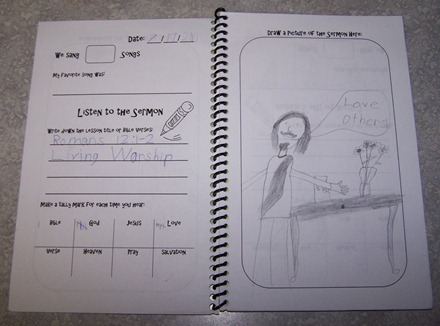 Date:
We Sang Songs
My Favorite Song Was:
Listen to the Sermon
Write down the lesson title or Bible Verses:
Romans 12:1-2
Living Worship
Make a tally mark for each time you hear:
Bible God Jesus Love
Verse Heaven Pray Salvation
Draw a Picture of the Sermon Here:
Love
Others